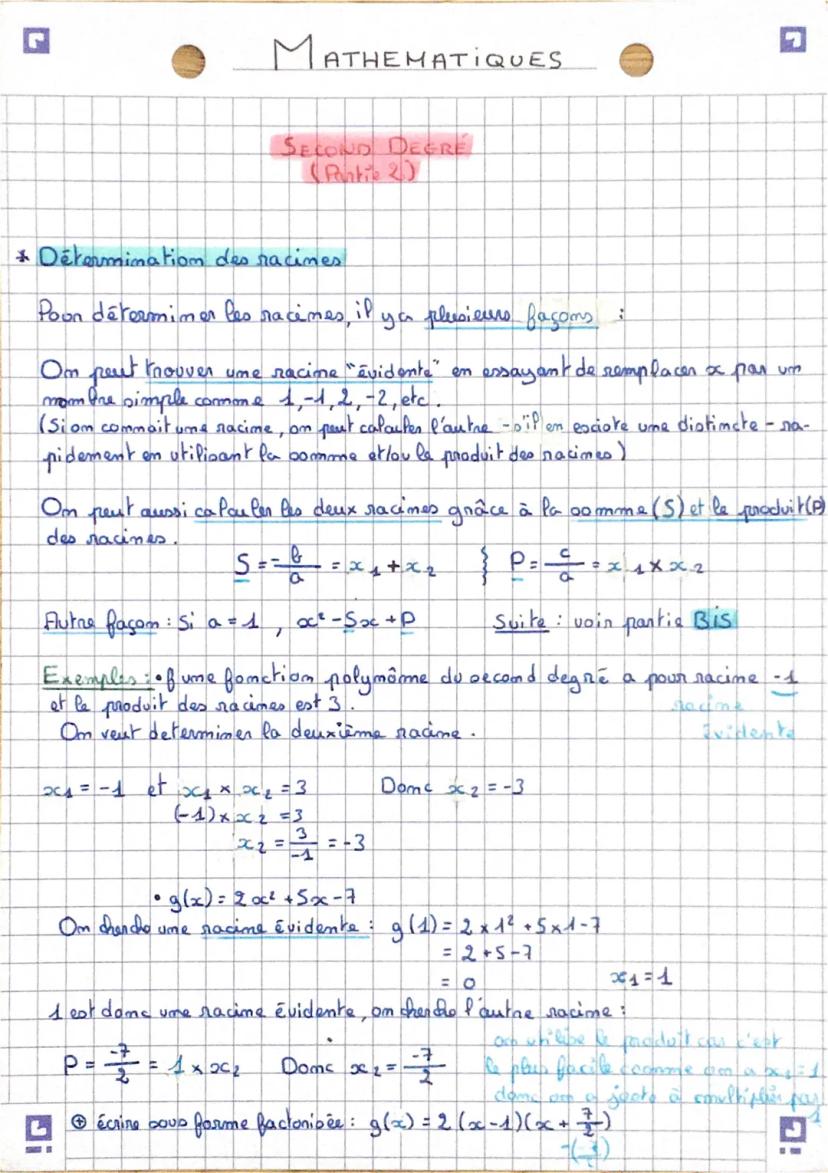 MATHEMATIQUES
SECOND DEGRÉ
(Partie 2)
* Détermination des racines
Pour déterminer les racines, il y a plusieurs façons :
On peut trouver une racine "évidente" en essayant de remplacer x par un
nombre simple comme 1, -1, 2, -2, etc.
(Si on connait une racine, on peut calculer l'autre - s'il en existe une distincte - ra-
pidement en utilisant la somme et/ou le produit des racines)
On peut aussi calculer les deux racines grâce à la somme (S) et le produit (P)
des racines.
S = -b/a = x₁ + x₂ } P = c/a = x₁ × x₂
Autre façon : Si a = 1 , x² - Sx + P Suite : voir partie BIS
Exemples : • f une fonction polynôme du second degré a pour racine -1
et le produit des racines est 3. racine
On veut determiner la deuxième racine. évidente
x₁ = -1 et x₁ × x₂ = 3 Donc x₂ = -3
(-1) × x₂ = 3
x₂ = 3/-1 = -3
• g(x) = 2x² + 5x - 7
On cherche une racine évidente : g(1) = 2 × 1² + 5 × 1 - 7
= 2 + 5 - 7
= 0 x₁ = 1
1 est donc une racine évidente, on cherche l'autre racine :
on utilise le produit car c'est
P = -7/2 = 1 × x₂ Donc x₂ = -7/2 le plus facile comme on a x₁ = 1
donc on a juste à multiplier par 1
⊕ écrire sous forme factorisée : g(x) = 2 (x - 1)(x + 7/2)